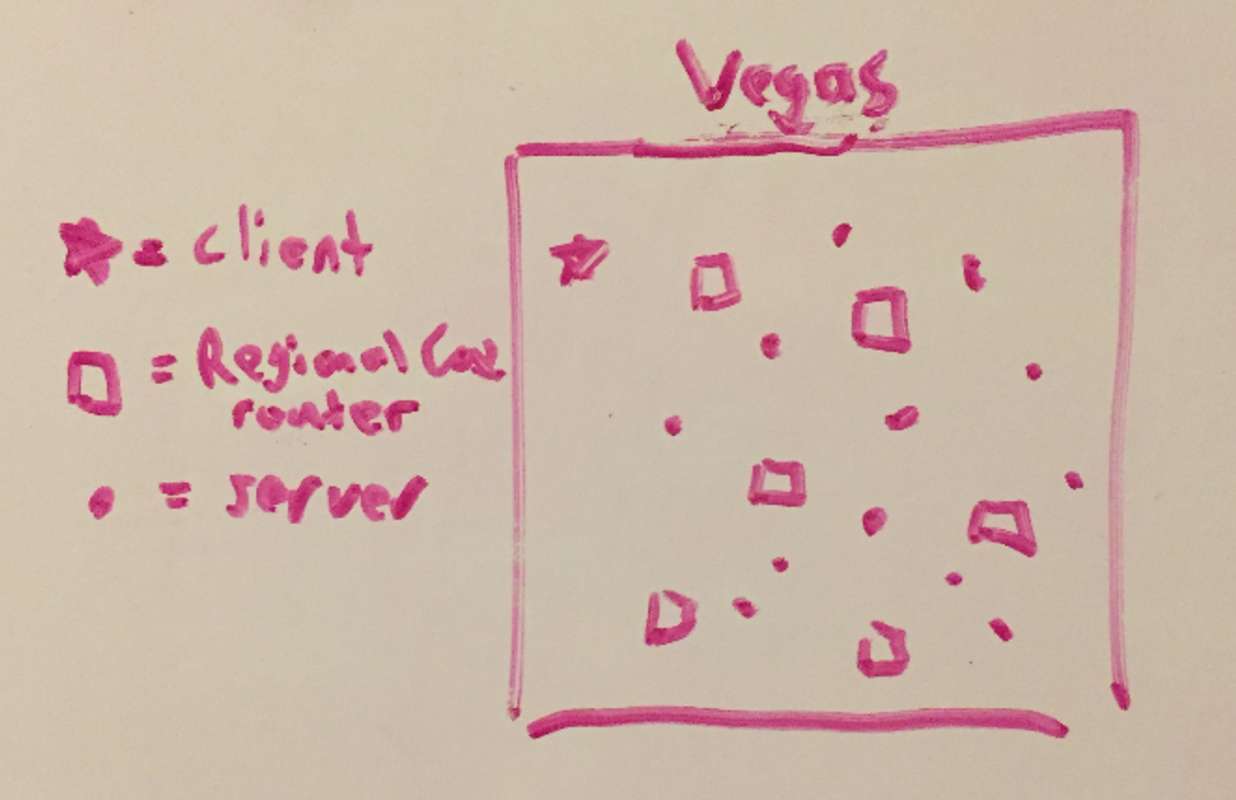 Vegas
= client
= Regional Core
router
= server